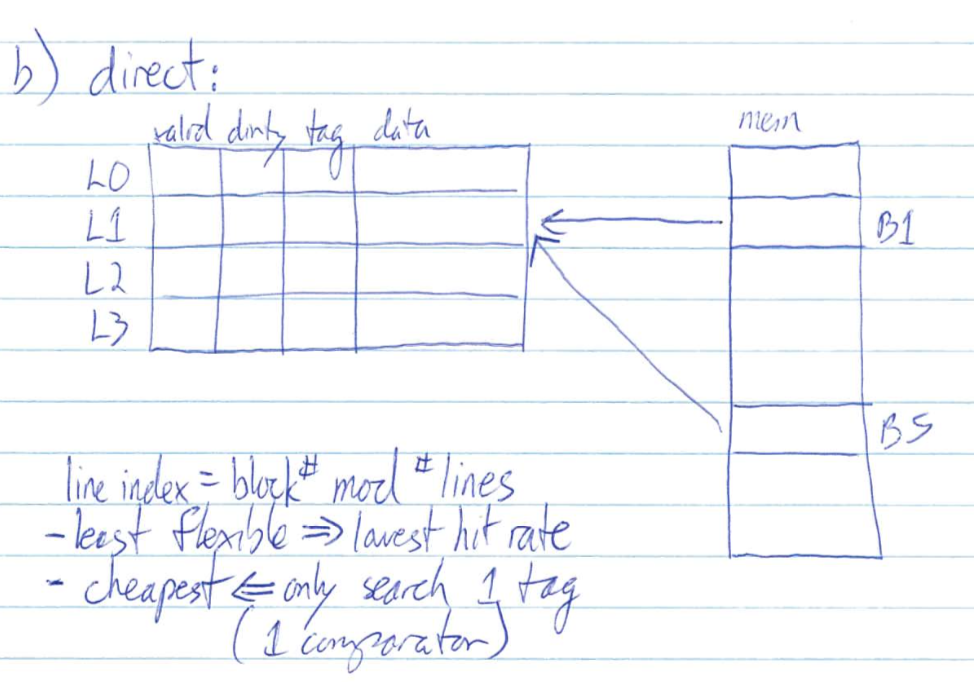 b) direct:
valid dirty tag data
mem
L0
L1
B1
L2
L3
B5
line index = block# mod #lines
- least flexible ⇒ lowest hit rate
- cheapest ⇐ only search 1 tag
(1 comparator)